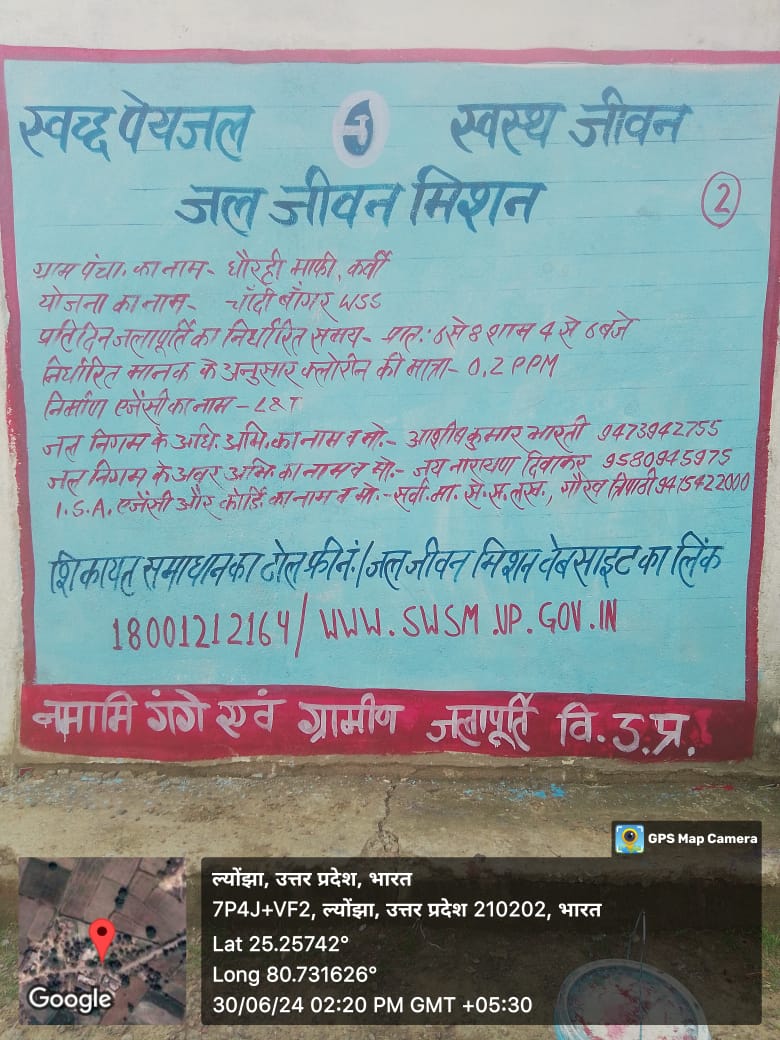 स्वच्छ पेयजल स्वस्थ जीवन
जल जीवन मिशन
2
ग्राम पंचा. का नाम- घौरही माफी, कर्वी
योजना का नाम- चाँदी बाँगर WSS
प्रतिदिन जलापूर्ति का निर्धारित समय- प्रात: 6 से 8 शाम 4 से 6 बजे
निर्धारित मानक के अनुसार क्लोरीन की मात्रा- 0.2 PPM
निर्माण एजेंसी का नाम - L&T
जल निगम के अधि. अभि. का नाम व मो.- आशीष कुमार भारती 9473942755
जल निगम के अवर अभि. का नाम व मो.- जय नारायण दिवाकर 9580945975
I.S.A. एजेंसी और कोर्डि. का नाम व मो- सर्वो. मा. से. स. लख., गौरव त्रिपाठी 9415422000
शिकायत समाधान का टोल फ्री नं./जल जीवन मिशन वेबसाइट का लिंक
18001212164/ WWW.SWSM.UP.GOV.IN
नमामि गंगे एवं ग्रामीण जलापूर्ति वि. उ.प्र.
GPS Map Camera
ल्योंझा, उत्तर प्रदेश, भारत
7P4J+VF2, ल्योंझा, उत्तर प्रदेश 210202, भारत
Lat 25.25742°
Long 80.731626°
30/06/24 02:20 PM GMT +05:30
Google